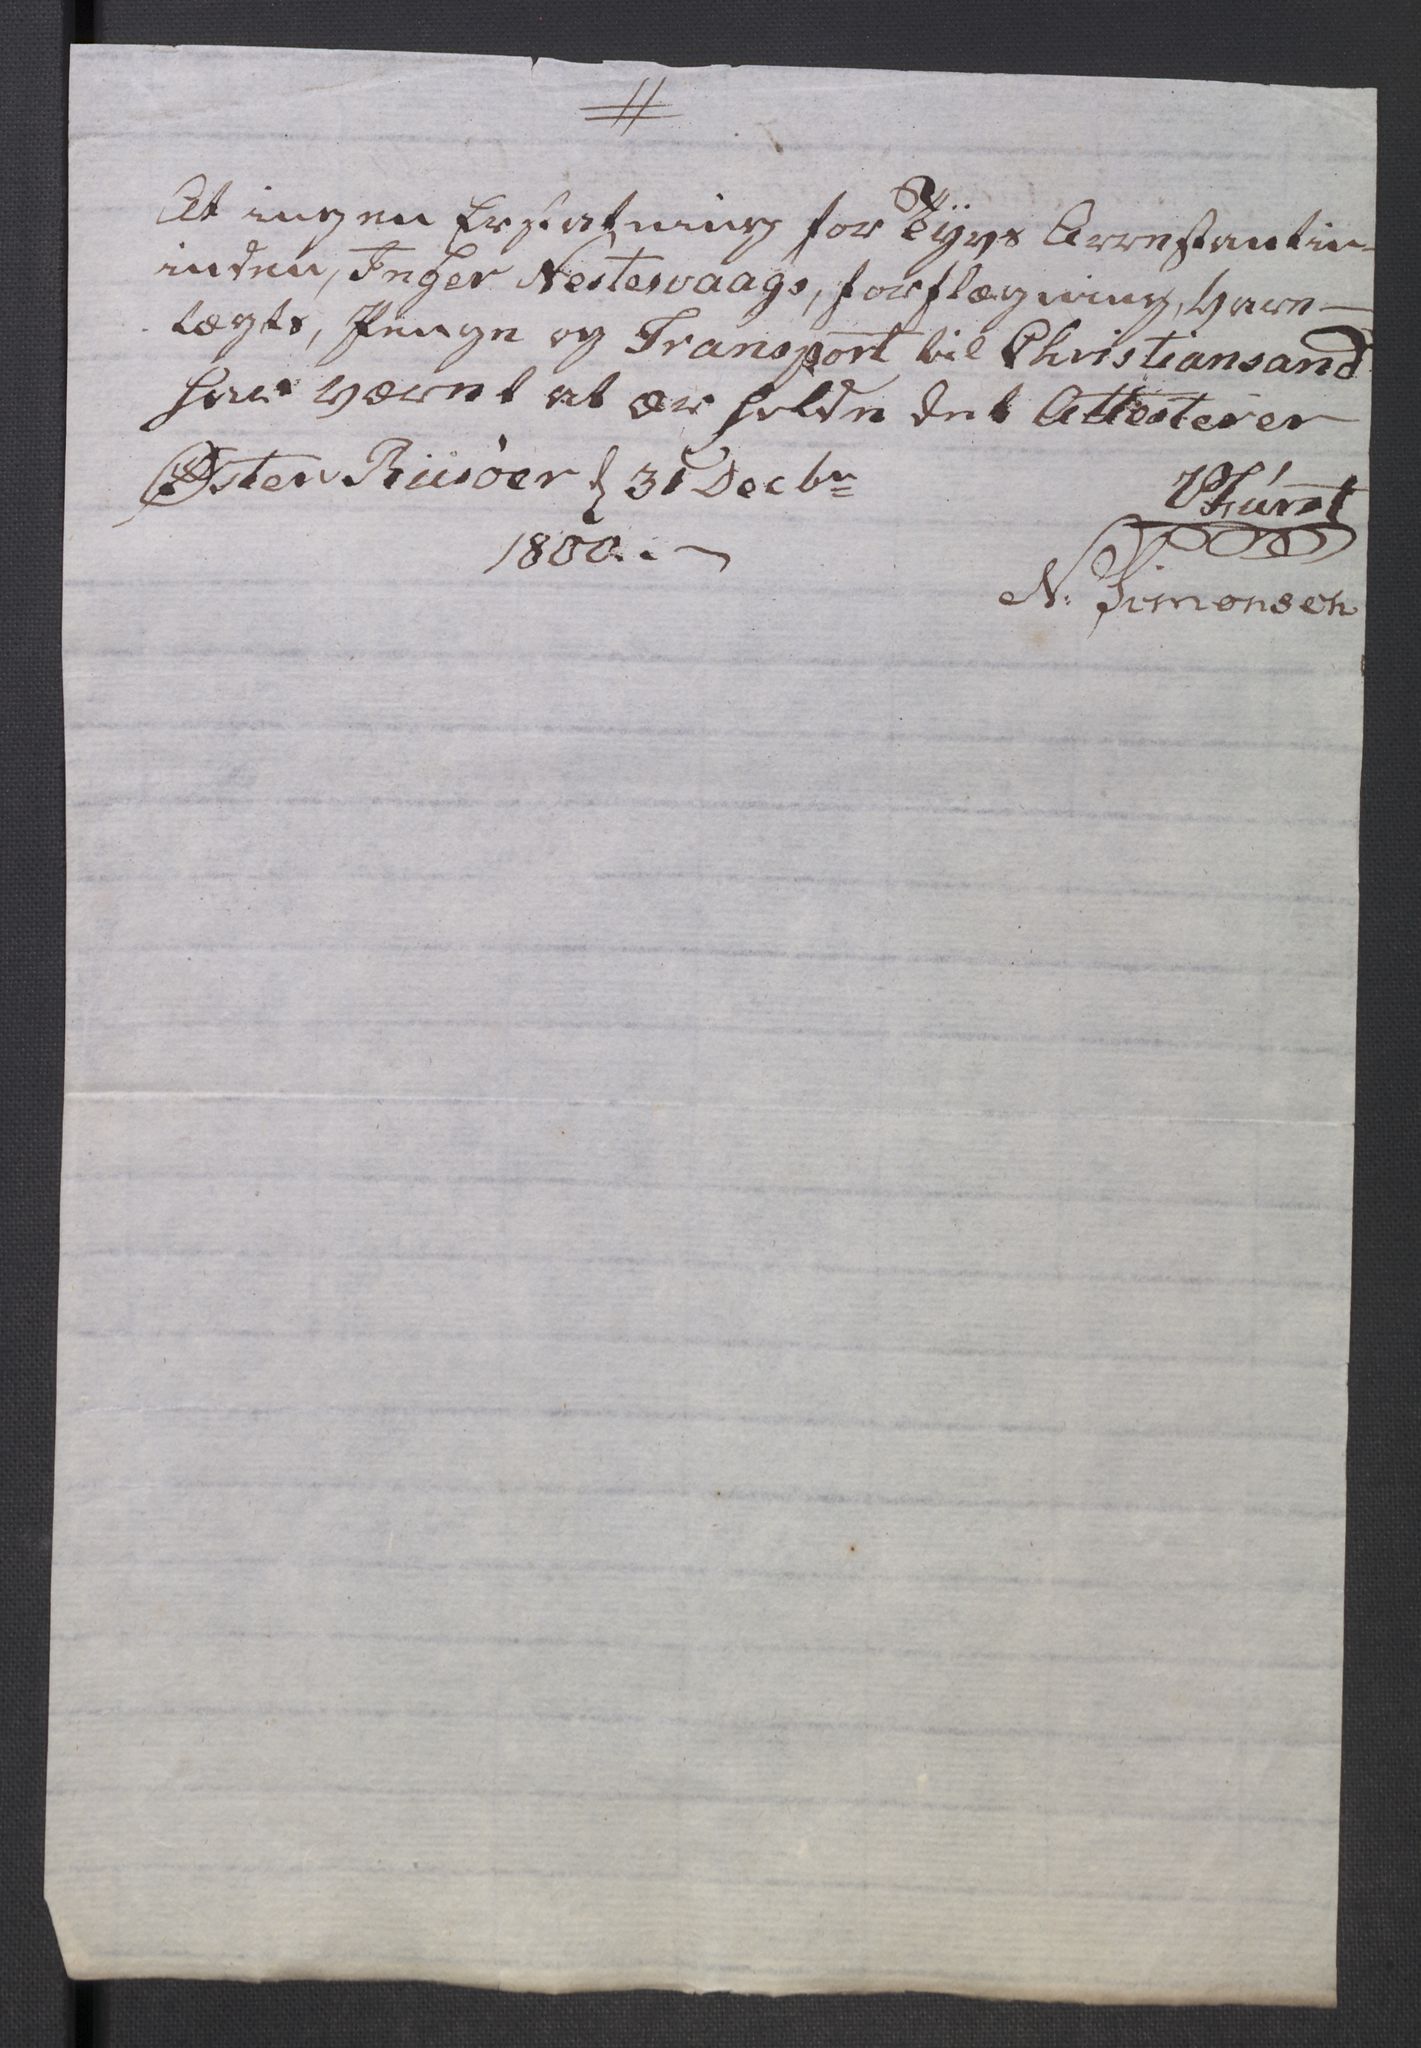 At ingen Erstatning for Tÿvs Arrestantin-
inden, Inger Nestesvaags, forflægning, Vare-
tægts, Penge og Transport til Christiansand
har været at er holde det Attesterer
Øster Riisöer d 31 Decbr
1800. -
Fürst
N: Simonsen